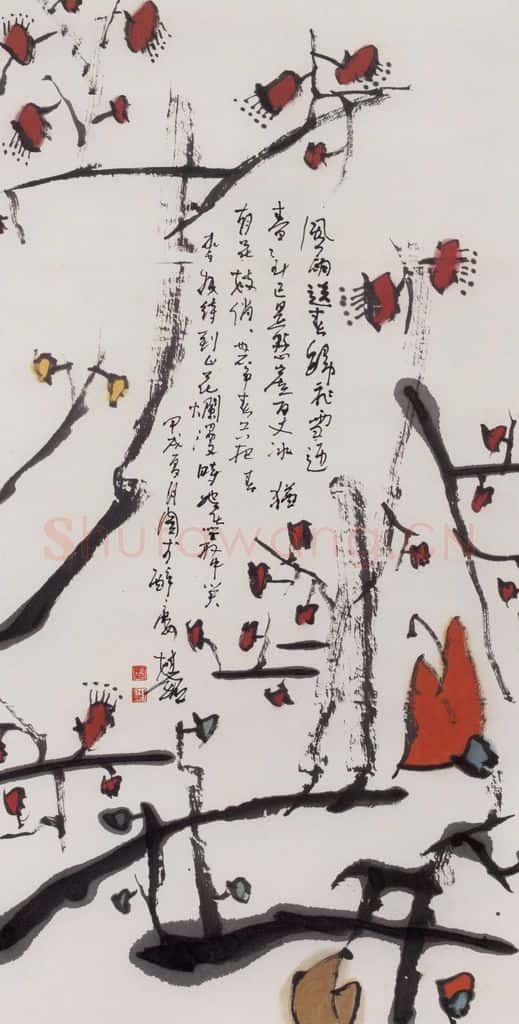 風雨送春歸飛雪迎
春到已是懸崖百丈冰 猶
有花枝俏、也不争春只把春
來報待到山花爛漫時她在叢中笑
甲戌夏月
Shufawang.CN